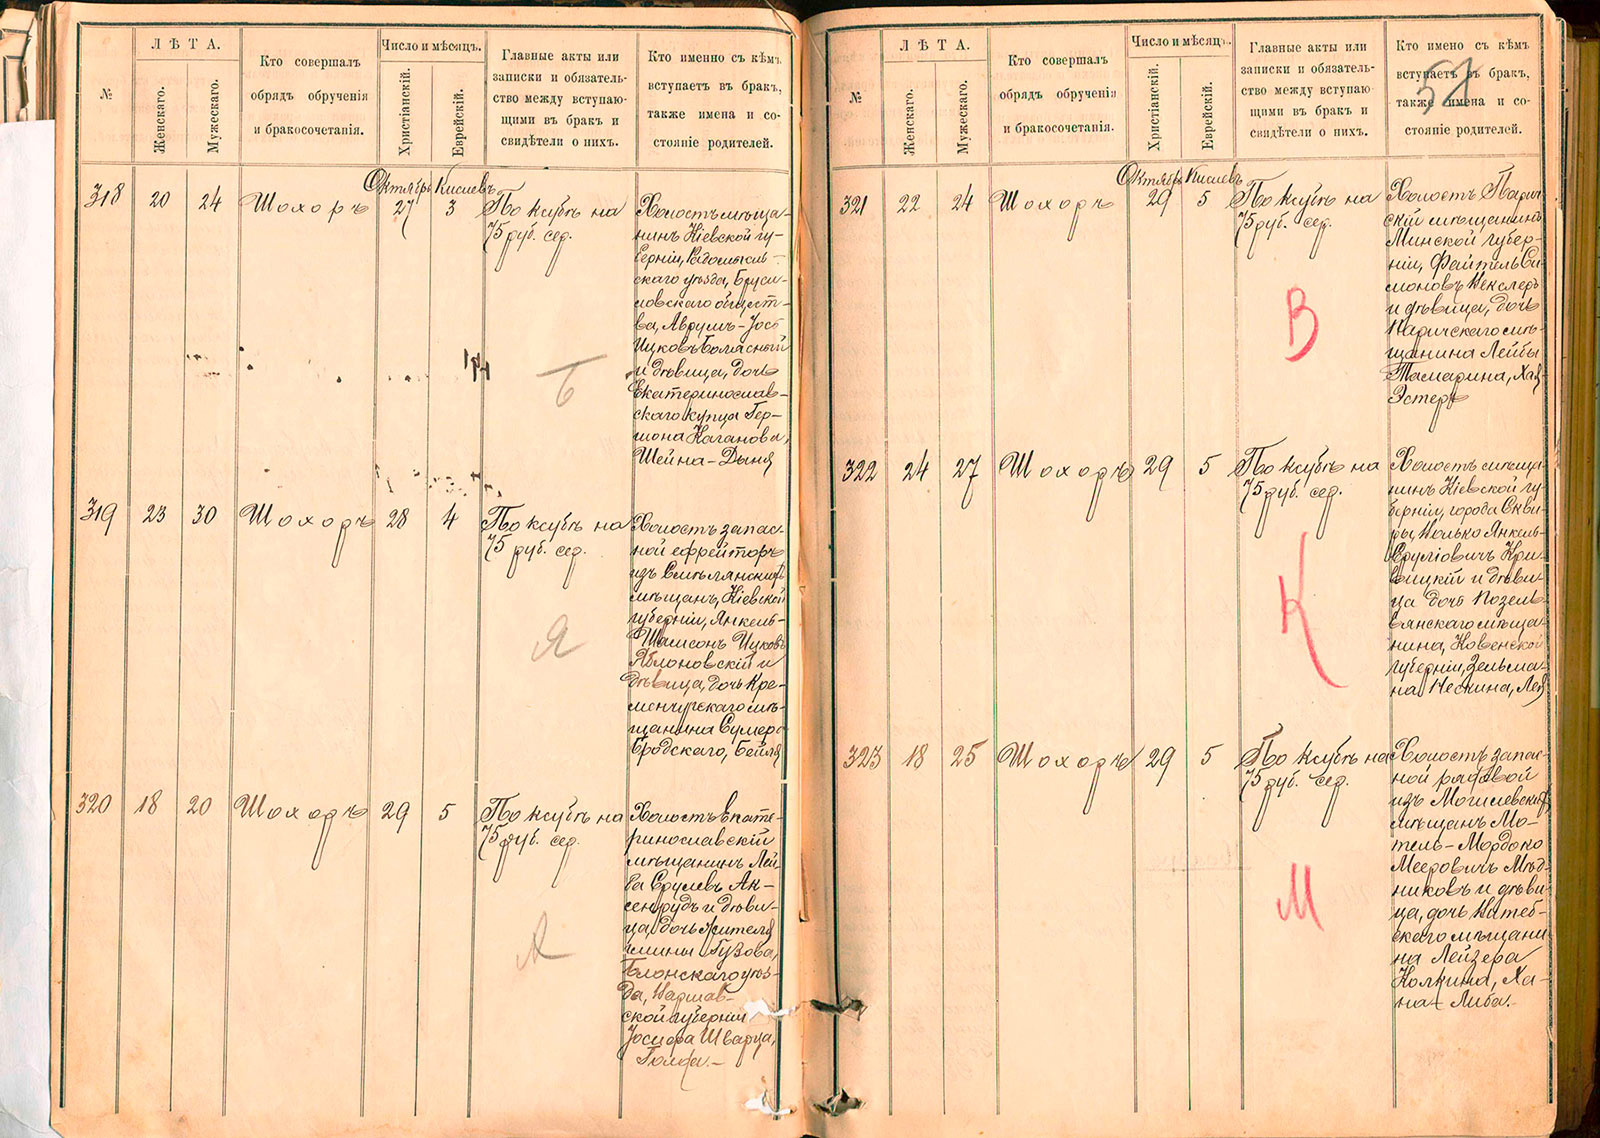 №
ЛѢТА.
Женскаго.
Мужескаго.
Кто совершалъ
обрядъ обрученія
и бракосочетанія.
Число и мѣсяцъ.
Христіанскій.
Еврейскій.
Главные акты или
записки и обязатель-
ство между вступаю-
щими въ бракъ и
свидѣтели о нихъ.
Кто именно съ кѣмъ
вступаетъ въ бракъ,
также имена и со-
стояніе родителей.
Октябрь Кислевъ
318 20 24 Шохоръ 27 3 По ксубѣ на
75 руб. сер.
Холостъ мѣща-
нинъ Кіевской гу-
берніи, Радомысль-
скаго уѣзда, Бруси-
ловскаго общест-
ва, Аврумъ-Іос
Ицковъ
и дѣвица, дочь
Екатеринослав-
скаго купца Гер-
шона Каганова,
Шейна-Дыня
Б
319 23 30 Шохоръ 28 4 По ксубѣ на
75 руб. сер.
Холостъ запас-
ной ефрейторъ
изъ Смѣлянскихъ
мѣщанъ, Кіевской
губерніи, Янкель-
Шамсонъ Ицковъ
Яблоновскій и
дѣвица, дочь Кре-
менчугскаго мѣ-
щанина
Бродскаго, Бейля
Я
320 18 20 Шохоръ 29 5 По ксубѣ на
75 руб. сер.
Холостъ Екате-
ринославскій
мѣщанинъ Лей-
ба Срулевъ Ак-
сенрудъ и дѣви-
ца, дочь жителя
гмины Гузова,
Блонскаго уѣз-
да, Варшав-
ской губерніи
Іосифа Шварца,
Голда.-
А
51
№
ЛѢТА.
Женскаго.
Мужескаго.
Кто совершалъ
обрядъ обрученія
и бракосочетанія.
Число и мѣсяцъ.
Христіанскій.
Еврейскій.
Главные акты или
записки и обязатель-
ство между вступаю-
щими въ бракъ и
свидѣтели о нихъ.
Кто имено съ кѣмъ
вступаетъ въ бракъ,
также имена и со-
стояніе родителей.
Октябрь Кислевъ
321 22 24 Шохоръ 29 5 По ксубѣ на
75 руб. сер.
Холостъ Парич-
скій мѣщанинъ
Минской губер-
ніи, Файтель Си-
моновъ Векслеръ
и дѣвица, дочь
Паричскаго мѣ-
щанина Лейбы
Тамаркина, Хая-
Эстеръ
В
322 24 27 Шохоръ 29 5 По ксубѣ на
75 руб. сер.
Холостъ мѣща-
нинъ Кіевской гу-
берніи, города Скви-
ры Янкель-
Сруліовичъ Кри-
вицкій и дѣви-
ца дочь
мѣща-
нина, Ковенской
губерніи, Зельма-
на Лея
К
323 18 25 Шохоръ 29 5 По ксубѣ на
75 руб. сер.
Холостъ запас-
ной рядовой
изъ Могилевскихъ
мѣщанъ Мо-
тель-Мордохо
Мееровичъ Мѣд-
никовъ и дѣви-
ца, дочь Витеб-
скаго мѣщани
на Лейзера
Колкина, Ха-
на-Либа.-
М